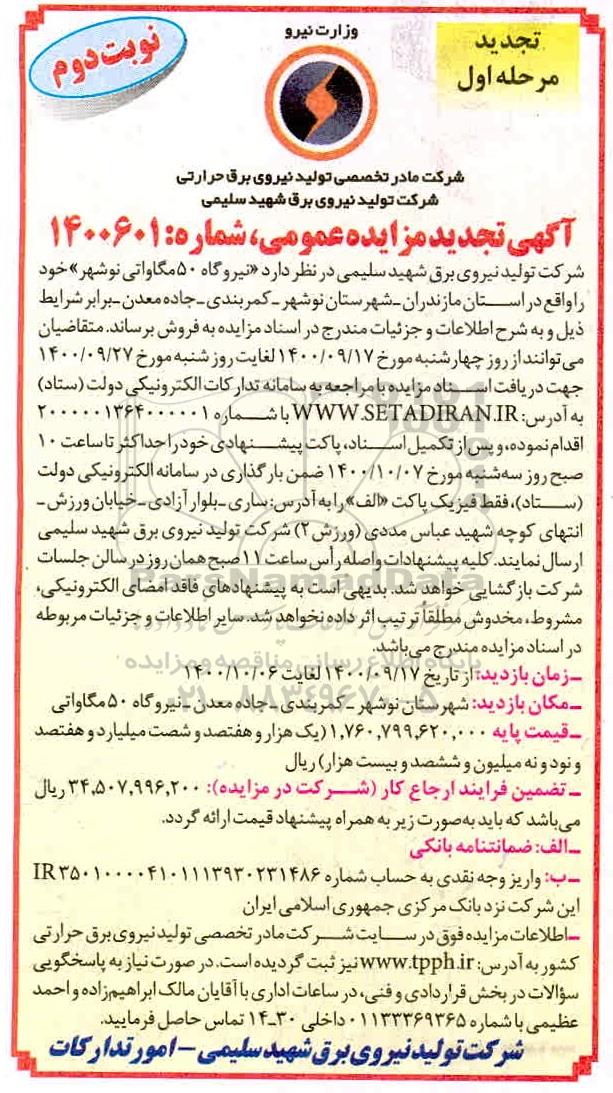 وزارت نیرو
نوبت دوم
تجدید
مرحله اول
شرکت مادر تخصصی تولید نیروی برق حرارتی
شرکت تولید نیروی برق شهید سلیمی
آگهی تجدید مزایده عمومی، شماره: ۱۴۰۰۶۰۱
شرکت تولید نیروی برق شهید سلیمی در نظر دارد «نیروگاه ۵۰ مگاواتی نوشهر» خود
را واقع در استان مازندران ـ شهرستان نوشهر ـ کمربندی ـ جاده معدن ـ برابر شرایط
ذیل و به شرح اطلاعات و جزئیات مندرج در اسناد مزایده به فروش برساند. متقاضیان
می‌توانند از روز چهارشنبه مورخ ۱۴۰۰/۰۹/۱۷ لغایت روز شنبه مورخ ۱۴۰۰/۰۹/۲۷
جهت دریافت اسناد مزایده با مراجعه به سامانه تدارکات الکترونیکی دولت (ستاد)
به آدرس: WWW.SETADIRAN.IR با شماره ۲۰۰۰۰۰۱۳۶۴۰۰۰۰۰۱
اقدام نموده، و پس از تکمیل اسناد، پاکت پیشنهادی خود را حداکثر تا ساعت ۱۰
صبح روز سه‌شنبه مورخ ۱۴۰۰/۱۰/۰۷ ضمن بارگذاری در سامانه الکترونیکی دولت
(ستاد)، فقط فیزیک پاکت «الف» را به آدرس: ساری ـ بلوار آزادی ـ خیابان ورزش ـ
انتهای کوچه شهید عباس مددی (ورزش ۲) شرکت تولید نیروی برق شهید سلیمی
ارسال نمایند. کلیه پیشنهادات واصله رأس ساعت ۱۱ صبح همان روز در سالن جلسات
شرکت بازگشایی خواهد شد. بدیهی است به پیشنهادهای فاقد امضای الکترونیکی،
مشروط، مخدوش مطلقاً ترتیب اثر داده نخواهد شد. سایر اطلاعات و جزئیات مربوطه
در اسناد مزایده مندرج می‌باشد.
ـ زمان بازدید: از تاریخ ۱۴۰۰/۰۹/۱۷ لغایت ۱۴۰۰/۱۰/۰۶
ـ مکان بازدید: شهرستان نوشهر ـ کمربندی ـ جاده معدن ـ نیروگاه ۵۰ مگاواتی
ـ قیمت پایه ۱,۷۶۰,۷۹۹,۶۲۰,۰۰۰ (یک هزار و هفتصد و شصت میلیارد و هفتصد
و نود و نه میلیون و ششصد و بیست هزار) ریال
ـ تضمین فرایند ارجاع کار (شرکت در مزایده): ۳۴,۵۰۷,۹۹۶,۲۰۰ ریال
می‌باشد که باید به‌صورت زیر به همراه پیشنهاد قیمت ارائه گردد.
ـ الف: ضمانتنامه بانکی
ـ ب: واریز وجه نقدی به حساب شماره IR۳۵۰۱۰۰۰۰۴۱۰۱۱۱۳۹۳۰۲۳۱۴۸۶
این شرکت نزد بانک مرکزی جمهوری اسلامی ایران
ـ اطلاعات مزایده فوق در سایت شرکت مادر تخصصی تولید نیروی برق حرارتی
کشور به آدرس: www.tpph.ir نیز ثبت گردیده است. در صورت نیاز به پاسخگویی
سؤالات در بخش قراردادی و فنی، در ساعات اداری با آقایان مالک ابراهیم‌زاده و احمد
عظیمی با شماره ۰۱۱۳۳۳۶۹۳۶۵ داخلی ۳۰ـ۱۴ تماس حاصل فرمایید.
شرکت تولید نیروی برق شهید سلیمی – امور تدارکات
ParsNamadData
پایگاه اطلاع رسانی مناقصه و مزایده
۰۲۱-۸۸۳۴۹۶۷۰-۵